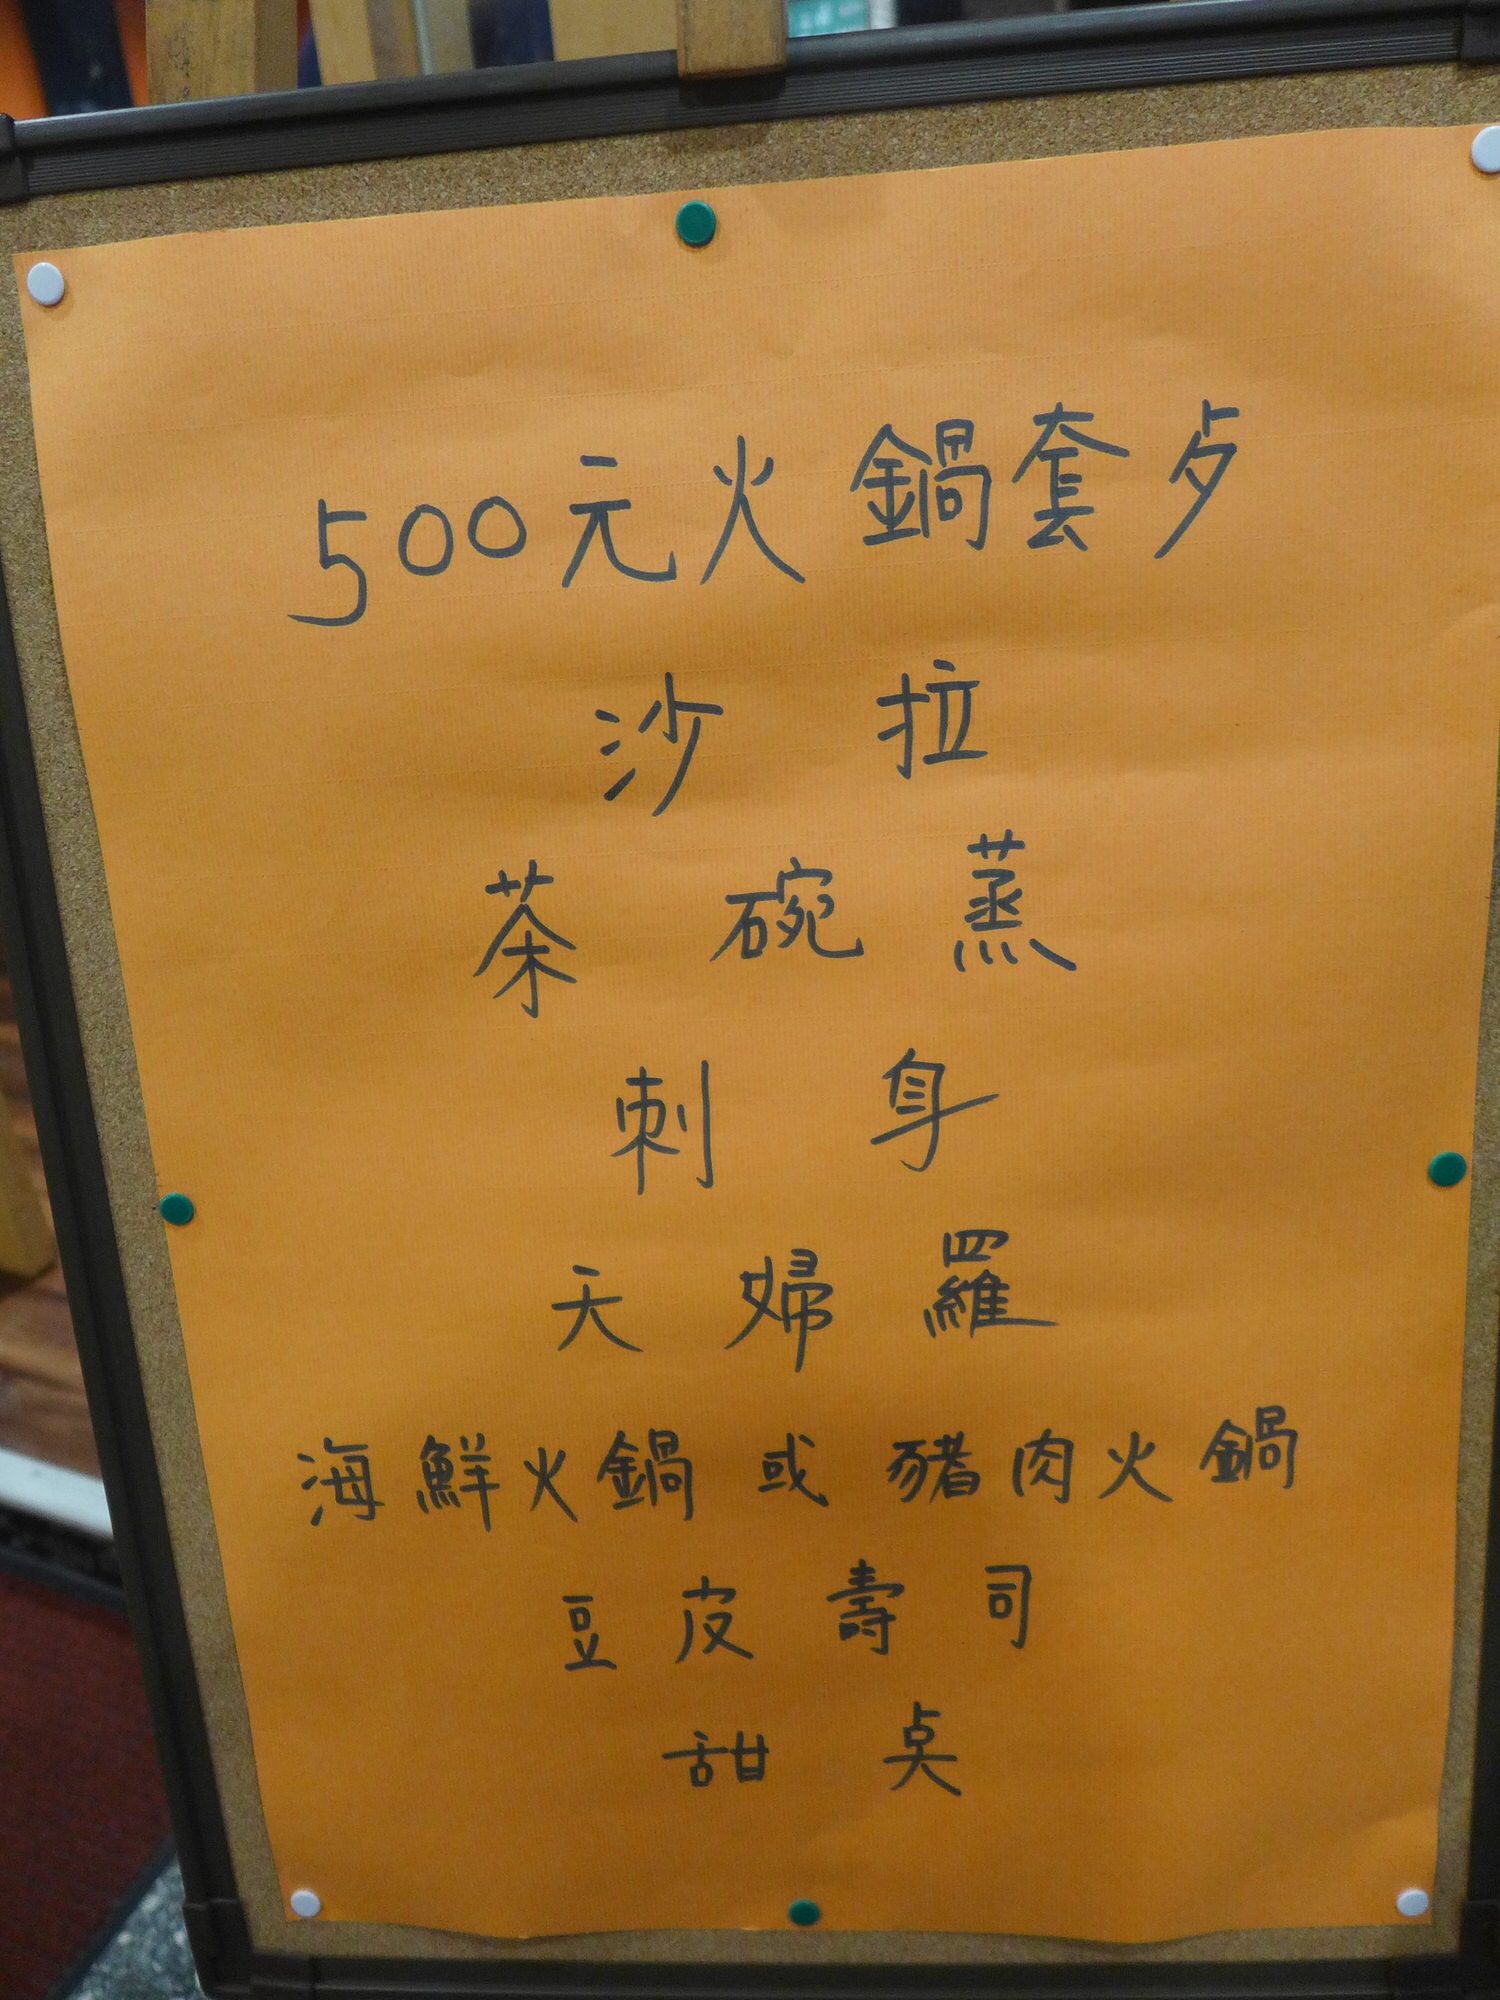 500元火鍋套歺
沙拉
茶碗蒸
刺身
天婦羅
海鮮火鍋或豬肉火鍋
豆皮壽司
甜奌